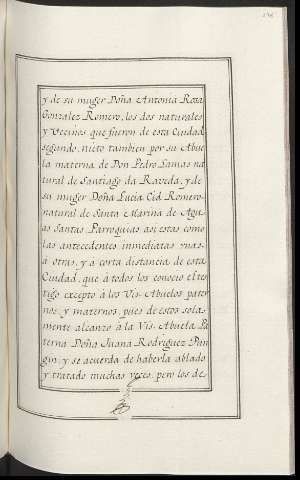 y de su muger Doña Antonia Rosa
Gonzalez Romero, los dos naturales
y Vecinos que fueron de esta Ciudad
segundo, nieto tambien por su Abue
la materna de Don Pedro Lamas na
tural de Santiago da Raveda, y de
su muger Doña Lucia Cid Romero
natural de Santa Marina de Agu
as Santas Parroquias asi estas como
las antecedentes inmediatas unas
a otras, y a corta distancia de esta
Ciudad, que à todos los conocio el tes
tigo excepto à los Vis-Abuelos pater
nos, y maternos, pues de estos sola
mente alcanzo à la Vis-Abuela Pa
terna Doña Juana Rodriguez
y se acuerda de haberla ablado
y tratado muchas veces, pero los de